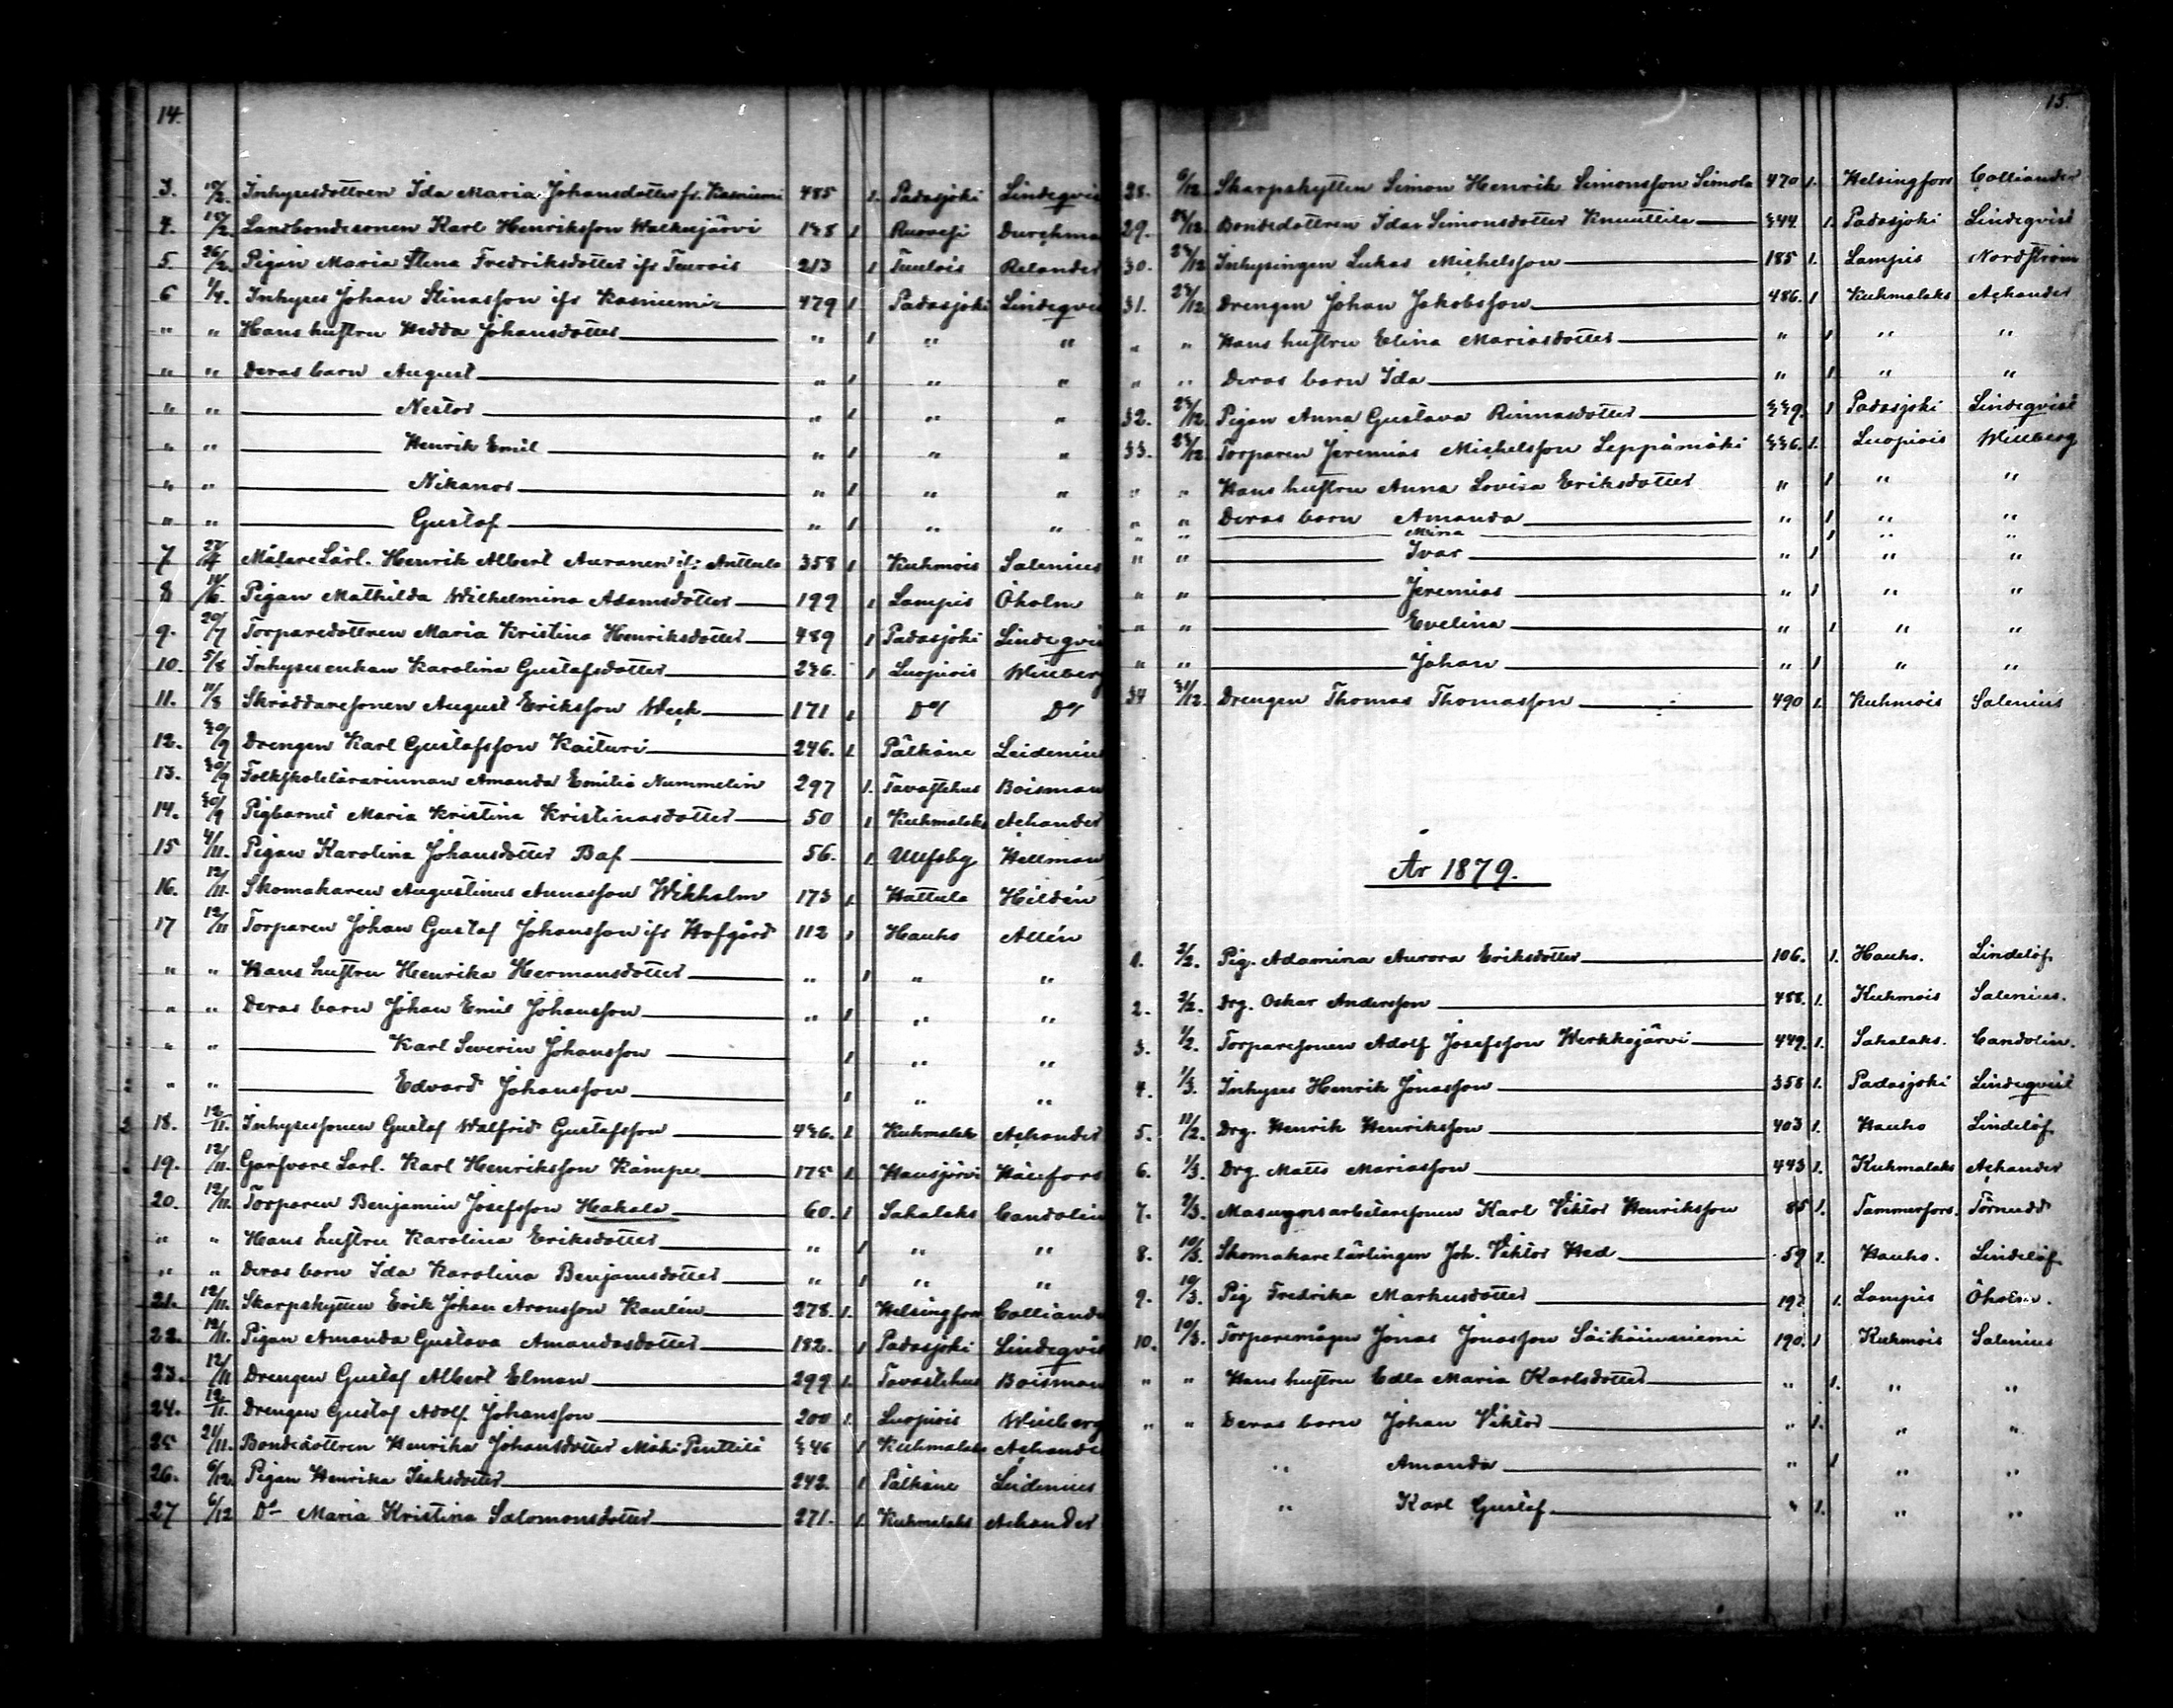 14.
3. 10/2. Inhysesdottren Ida Maria Johansdotter fr. Kasniemi 485 1. Padasjoki Lindeqvis
4. 18/2. Landbondesonen Karl Henriksson Walkeajärvi 138 1 Ruovesi Durchma
5. 26/2. Pigan Maria Stina Fredriksdotter ifr Teurois 213 1 Tuulois Relander
6 1/4. Inhyses Johan Stinasson ifr Kasniemi 479 1 Padasjoki Lindeqvis
" " Hans hustru Hedda Johansdotter " 1 " "
" " Deras barn August " 1 " "
" " Nestor " 1 " "
" " Henrik Emil " 1 " "
" " Nikanor " 1 " "
" " Gustaf " 1 " "
7 27/4 MålareLärl. Henrik Albert Auranen ifr Anttula 358 1 Kuhmois Salenius
8 14/6. Pigan Mathilda Wilhelmina Adamsdotter 199 1 Lampis Öholm
9. 20/7 Torparedottren Maria Kristina Henriksdotter 489 1 Padasjoki Lindeqvis
10. 5/8 Inhysesenkan Karolina Gustafsdotter 236. 1 Luopiois Willberg
11. 11/8 Skräddaresonen August Eriksson Weck 171 1 Do/ Do/
12. 30/9 Drengen Karl Gustafsson Kaituri 246. 1. Pälkäne Leidenius
13. 30/9 Folkskolelärarinnan Amanda Emilia Nummelin 297 1. Tavastehus Boisman
14. 30/9 Pigbarnet Maria Kristina Kristinasdotter 50 1 Kuhmalaks Achander
15 4/11. Pigan Karolina Johansdotter Baf 56. 1. Ulfsby Hellman
16. 12/11. Skomakaren Augustinus Annasson Wikholm 173 1. Hattula Hildén
17 12/11 Torparen Johan Gustaf Johansson ifr Hofgård 112 1 Hauho Allén
" " Hans hustru Henrika Hermansdotter " 1 " "
" " Deras barn Johan Emil Johansson " 1 " "
" " Karl Severin Johansson 1 " "
" " Edvard Johansson 1 " "
18. 12/11. Inhysessonen Gustaf Walfrid Gustafsson 436. 1. Kuhmalak Achander
19. 12/11. Garfvare Lärl. Karl Henriksson Kämpe 175 1. Hausjärvi Hällfors
20. 12/11. Torparen Benjamin Josefsson Hakala 60. 1 Sahalaks Candolin
" " Hans hustru Karolina Eriksdotter " 1 " "
" " Deras barn Ida Karolina Benjamsdotter " 1 " "
21. 12/11. Skarpskytten Erik Johan Aronsson Kaulén 278. 1. Helsingfors Colliande
22. 12/11. Pigan Amanda Gustava Amandasdotter 182. 1 Padasjoki Lindeqvis
23. 12/11 Drengen Gustaf Albert Elman 299 1. Tavastehus Boisman
24. 12/11. Drengen Gustaf Adolf Johansson 200 1. Luopiois Willberg
25 21/11. Bondedottren Henrika Johansdotter Mäki Penttilä 346 1 Kuhmalaks Achande
26. 6/12. Pigan Henrika Isaksdotter 242. 1 Pälkäne Leidenius
27 6/12 Do Maria Kristina Salomonsdotter 271. 1. Kuhmalaks Achander
15.
28. 6/12. Skarpskytten Simon Henrik Simonsson Simola 470 1. Helsingfors Colliander
29. /12. Bondedottren Ida Simonsdotter Knuuttila 344 1. Padasjoki Lindeqvist
30. 23/12 Inhysingen Lukas Michelsson 185 1. Lampis Nordström
31. 23/12 Drengen Johan Jakobsson 486. 1 Kuhmalaks Achander
" " Hans hustru Elina Mariasdotter " 1 " "
" " Deras barn Ida " 1. " "
32. 23/12. Pigan Anna Gustava Rinnasdotter 339. 1 Padasjoki Lindeqvist
33. 23/12. Torparen Jeremias Michelsson Leppämäki 336. 1. Luopiois Willberg
" " Hans hustru Anna Lovisa Eriksdotter " 1 " "
" " Deras barn Amanda " 1 " "
" " Mina 1 " "
" " Ivar " 1 " "
" " Jeremias " 1 " "
" " Evelina " 1 " "
" " Johan " 1 " "
34 31/12. Drengen Thomas Thomasson 490 1. Kuhmois Salenius
År 1879.
1. 2/2. Pig. Adamina Aurora Eriksdotter 106. 1. Hauho. Lindelöf
2. 2/2. Drg. Oskar Andersson 488. 1. Kuhmois Salenius.
3. 1/2. Torparesonen Adolf Josefsson Werkkojärvi 449. 1. Sahalaks. Candolin.
4. 1/3. Inhyses Henrik Jonasson 358 1. Padasjoki Lindeqvist
5. 11/2. Drg. Henrik Henriksson 403 1. Hauho Lindelöf
6. 1/3. Drg. Matts Mariasson 443 1. Kuhmalaks Achander
7. 7/3. Masugnsarbetaresonen Karl Viktor Henriksson 85 1. Tammerfors. Törnudd
8. 10/3. Skomakarelärlingen Joh. Viktor Hed 59 1. Hauho. Lindelöf
9. 10/3. Pig Fredrika Markusdotter 197 1. Lampis Öholm.
10. 10/3. Torparemågen Jonas Jonasson Säikäinniemi 190. 1 Kuhmois Salenius
" " Hans hustru Edla Maria Karlsdotter " 1. " "
" " Deras barn Johan Viktor " 1. " "
" Amanda " 1 " "
" Karl Gustaf " 1. " "